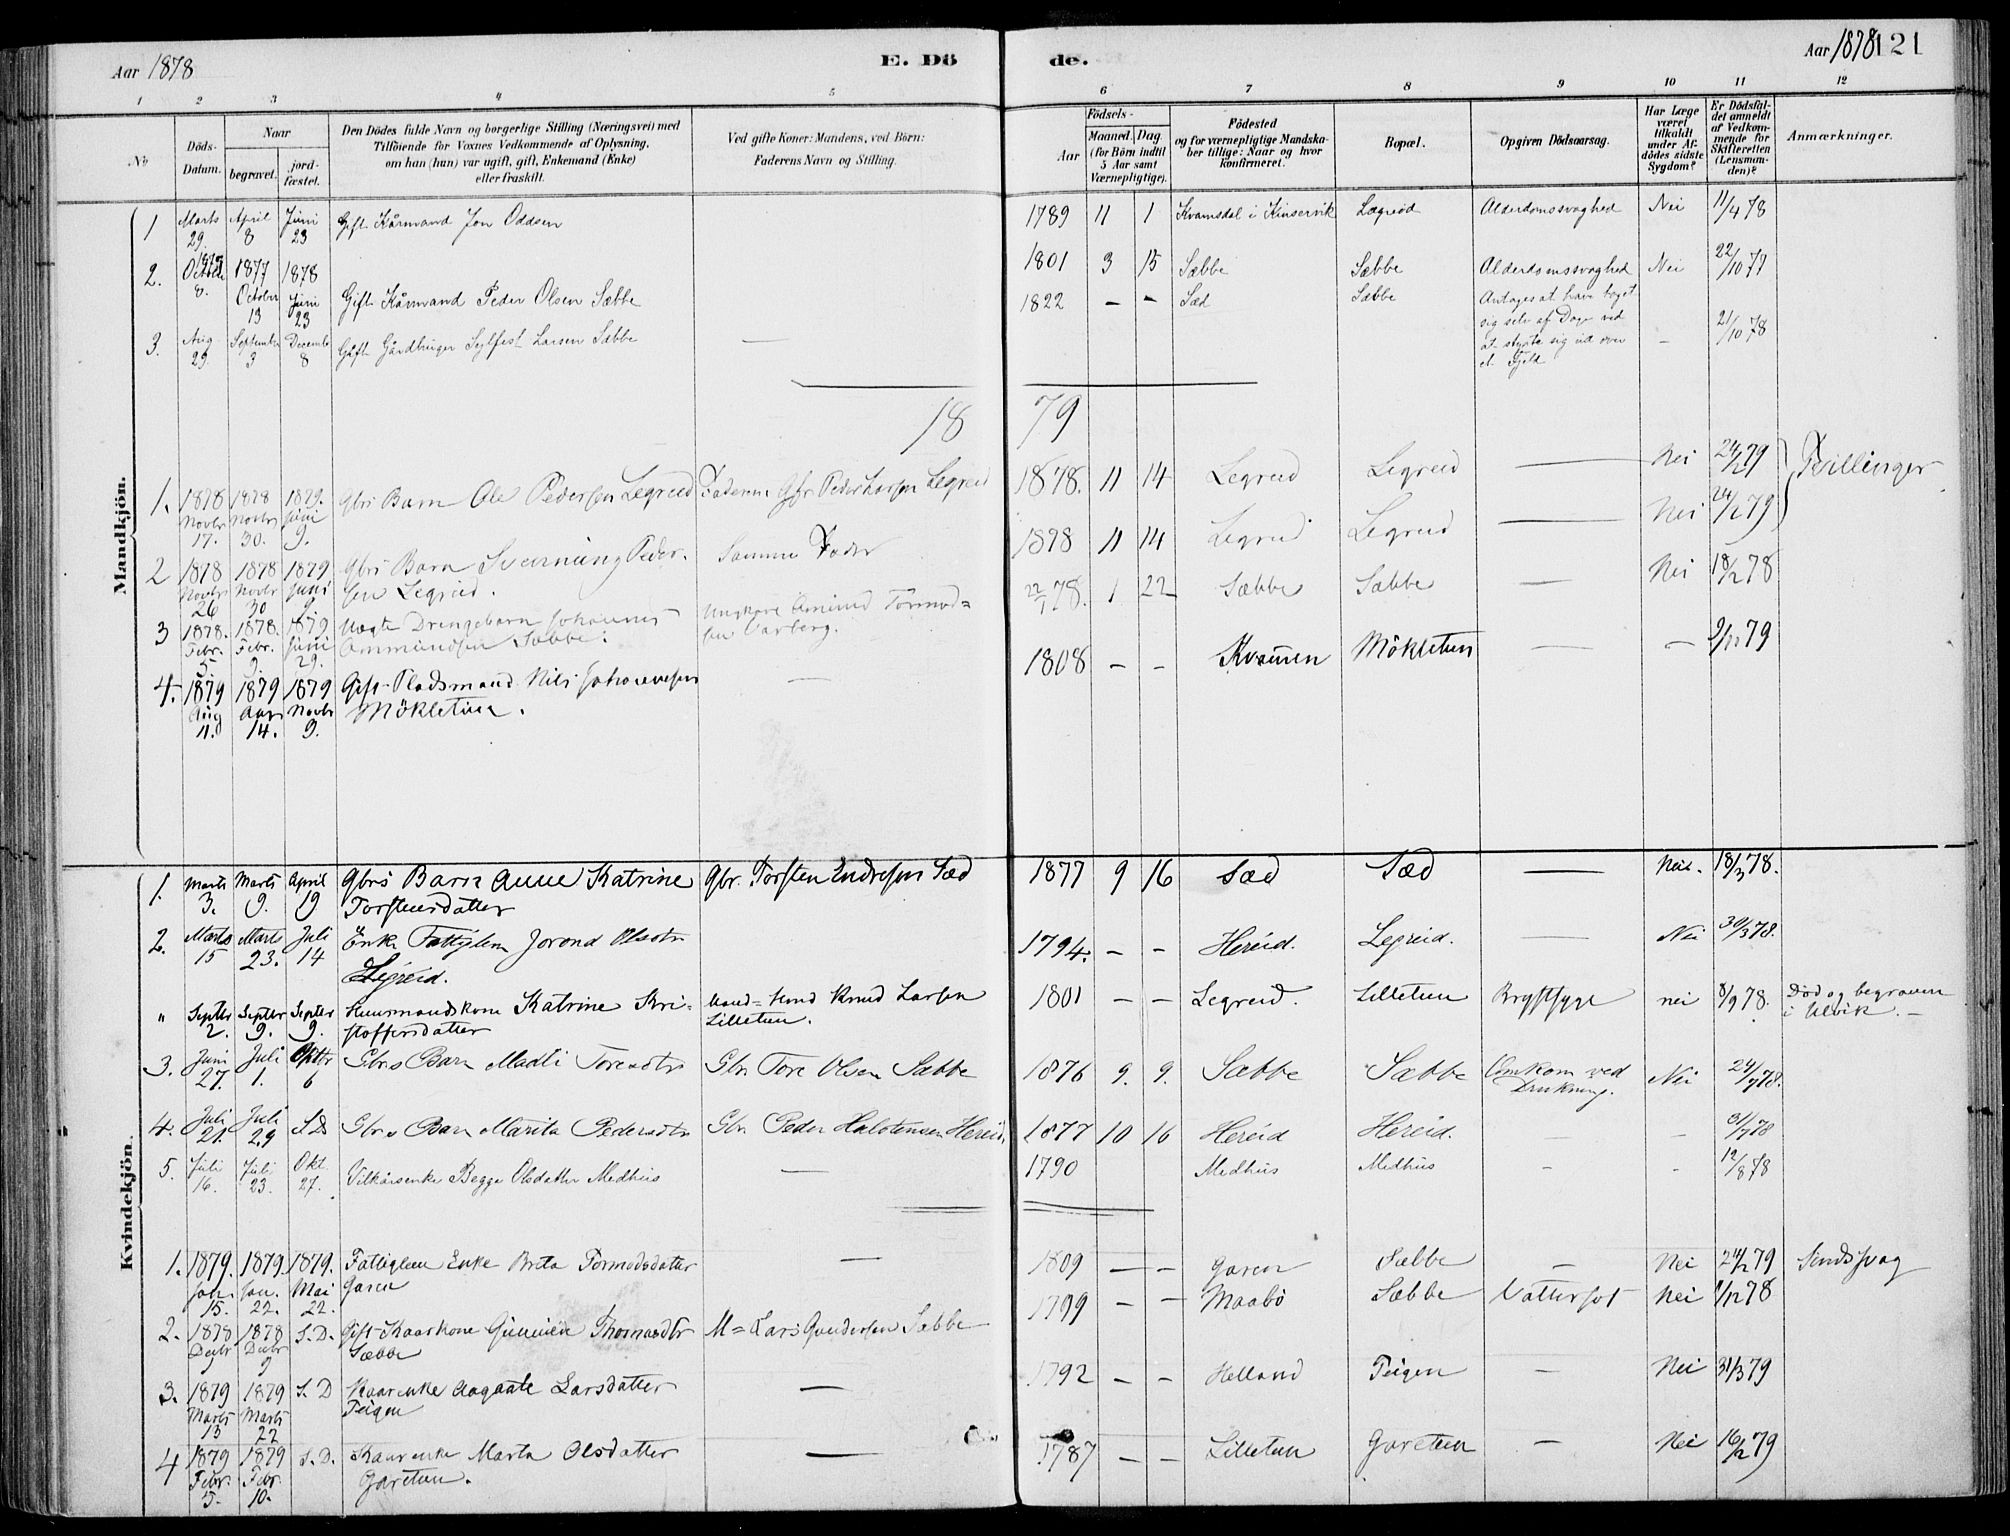 Aar 1878 E. Dö de. Aar 1878 121
1 2 3 4 5 6 7 8 9 10 11 12
No
Döds-Datum.
Naar
begravet.
jord-fæstet.
Den Dödes fulde Navn og borgerlige Stilling (Næringsvei) med
Tilföiende for Voxnes Vedkommende af Oplysning,
om han (hun) var ugift, gift, Enkemand (Enke)
eller fraskilt.
Ved gifte Koner: Mandens, ved Börn:
Faderens Navn og Stilling.
Födsels-
Aar
Maaned. Dag.
(for Börn indtil
5 Aar samt
Værnepligtige).
Födested
og for værnepligtige Mandska-
ber tillige: Naar og hvor
konfirmeret.
Bopæl.
Opgiven Dödsaarsag.
Har Læge
været
tilkaldt
under Af-
dödes sidste
Sygdom?
Er Dödsfal-
det anmeldt
af Vedkom-
mende for
Skifteretten
(Lensman-
den)?
Anmærkninger.
Mandkjön.
1 Marts 29. April 8 Juni 23 Gift Kårmand Jon Oddsen 1789 11 1 Kvamsdal i Kinservik Lægreid Alderdomssvaghed Nei 11/4 78
2. 1877 October 8. 1877 October 13 1878 Juni 23 Gift Kårmand Peder Olsen Sæbbe 1801 3 15 Sæbbe Sæbbe Alderdomssvaghed Nei 22/10 77
3. Aug 29 September 3 Decembr 8 Gift Gårdbruger Sylfest Larsen Sæbbe — 1822 — — Sæd Sæbbe Antages at have taget
sig selv af Dage ved
at styrte sig ud over
et Fjeld — 21/10 78
18 79
1. 1878 Novbr 17. 1878 Novbr 30. 1879. Juni 9. Gbrs Barn Ole Pedersen Legreid Faderen Gbr Peder Larsen Legreid 1878. 11 14 Legreid Legreid — Nei 24/2 79 Tvillinger
2 1878 Novbr 26 1878 Novbr 30 1879 Juni 9 Gbrs Barn Sveinung Peder-
sen Legreid. Samme Fader 1878 11 14 Legreid Legreid — Nei 24/2 79
3 1878. Febr. 5 1878. Febr. 9. 1879 Juni 29. Uægte Drengebarn Johannes
Ammundsen Sæbbe. Ungkare Amund Tormod=
sen Varberg. 22/1 78. 1 22 Sæbbe Sæbbe — Nei 18/2 78
4. 1879 Aug 11. 1879 Aug 14. 1879 Novbr 9. Gift Pladsmand Nils Johannessen
Mökletun. — 1808 — — Kvamen Mökletun — — 9/11 79
Kvindekjön.
1. Marts 3. Marts 9. April 19 Gbrs Barn Anne Katrine
Torstensdatter Gbr. Torsten Endresen Sæd 1877 9 16 Sæd Sæd — Nei. 18/3 78.
2. Marts 15 Marts 23. Juli 14 Enke Fattiglem Jorond Olsdtr
Legreid. 1794. — — Hereid. Legreid. — Nei 30/3 78.
" Septer 2. Septer 9. Septer 9. Huusmandskone Katrine Kri-
stoffersdatter Mand= Hmd Knud Larsen
Lilletun. 1801 — — Legreid. Lilletun Brystsyge nei 8/9 78. Död og begraven
i Ulvik. —
3. Juni 27. Juli 1. Oktbr 6 Gbrs Barn Madli Toresdtr Gbr Tore Olsen Sæbbe 1876 9. 9. Sæbbe Sæbbe Omkom ved
Drukning. Nei 24/7 78.
4. Juli 21. Juli 29 S.D. Gbrs Barn Marita Pedersdtr Gbr Peder Halstensen Hereid. 1877 10 16 Hereid Hereid. — — 31/7 78
5. Juli 16. Juli 23. Okt. 27. Vilkårsenke Begga Olsdatter Medhus — 1790 Medhus Medhus — — 12/8 78
1. 1879. Jan. 15. 1879. Jan. 22. 1879. Mai 22. Fattiglem Enke Brita Tormodsdatter
Garen — 1809 — — Garen Sæbbe — Nei 24/2 79 Sindssvag
2. 1878 Decbr 1878 Decbr 9 S.D. Gift Kaarkone Thomasdtr
Sæbbe M= Lars Gundersen Sæbbe 1799 — — Maabö Sæbbe Vattersot Nei 1/12 78
3. 1879 Marts 13 1879 Marts 22 S.D Kaarenke Aagaate Larsdatter
Teigen — 1792 — — Helland Teigen — Nei 31/3 79
4 1879 Febr. 5. 1879 Febr. 10. S.D. Kaarenke Marta Olsdatter
Garetun. — 1787 — — Lilletun Garetun — Nei 16/2 79